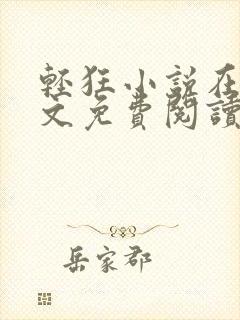 輕狂小說在
文免費閱讀
岳家郡